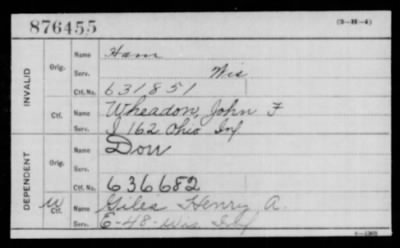 876455 (3-H-4)
INVALID
Orig.
Name Ham
Serv. Wis
Ctf. No. 631851
Ctf.
Name Wheadon, John F
Serv. I 162 Ohio Inf
DEPENDENT
Orig.
Name Dow
Serv.
Ctf. No. 636682
W Ctf.
Name Giles Henry A.
Serv. E-48-Wis Inf